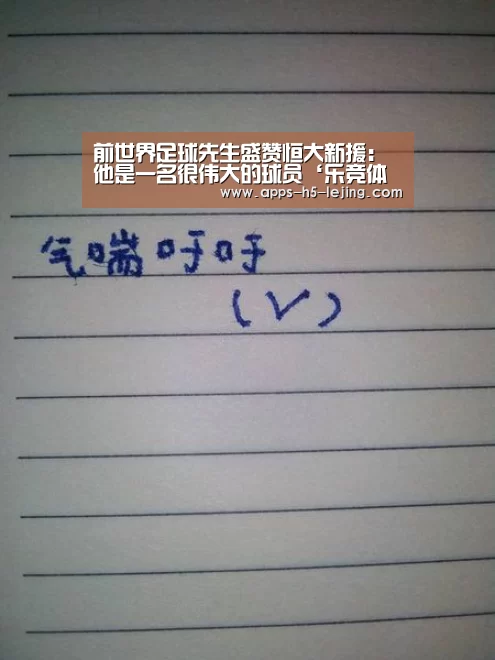 前世界足球先生盛赞恒大新援：
他是一名很伟大的球员‘乐竞体
www.apps-h5-lejing.com
气喘吁吁
（√）